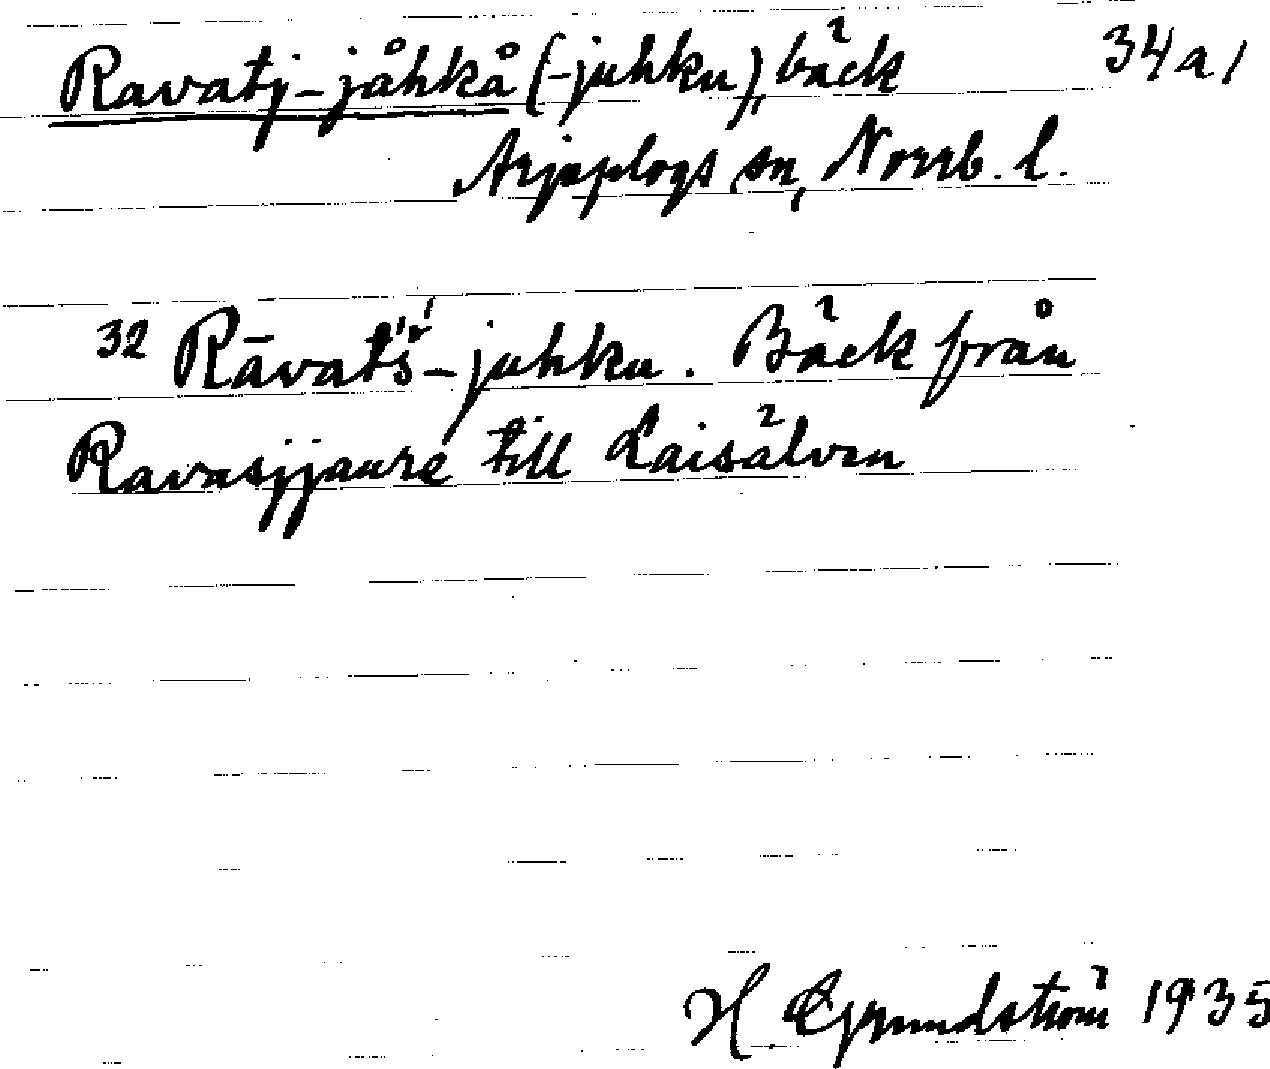 Ravatj-jåhkå (-juhku), bäck 34a1
Arjeplogs sn, Norrb. l.
32 Rāvatš́-juhku. Bäck från
Ravasjjaure till Laisälven
H. Grundström 1935